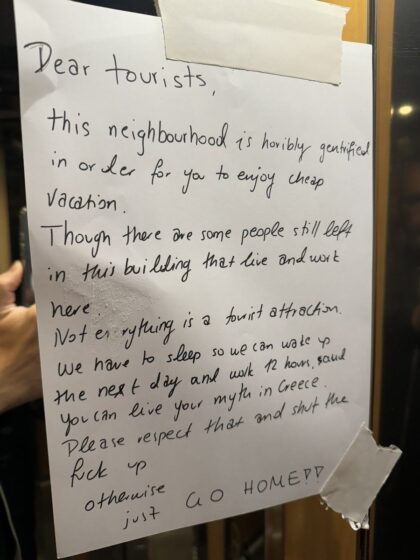 Dear tourists,
this neighbourhood is horibly gentrified
in order for you to enjoy cheap
vacation.
Though there are some people still left
in this building that live and work
here.
Not er rything is a tourist attraction.
We have to sleep so we can wake up
the next day and work 12 hours,
you can live your myth in Greece.
Please respect that and shut the
fuck up
otherwise
just GO HOME!!